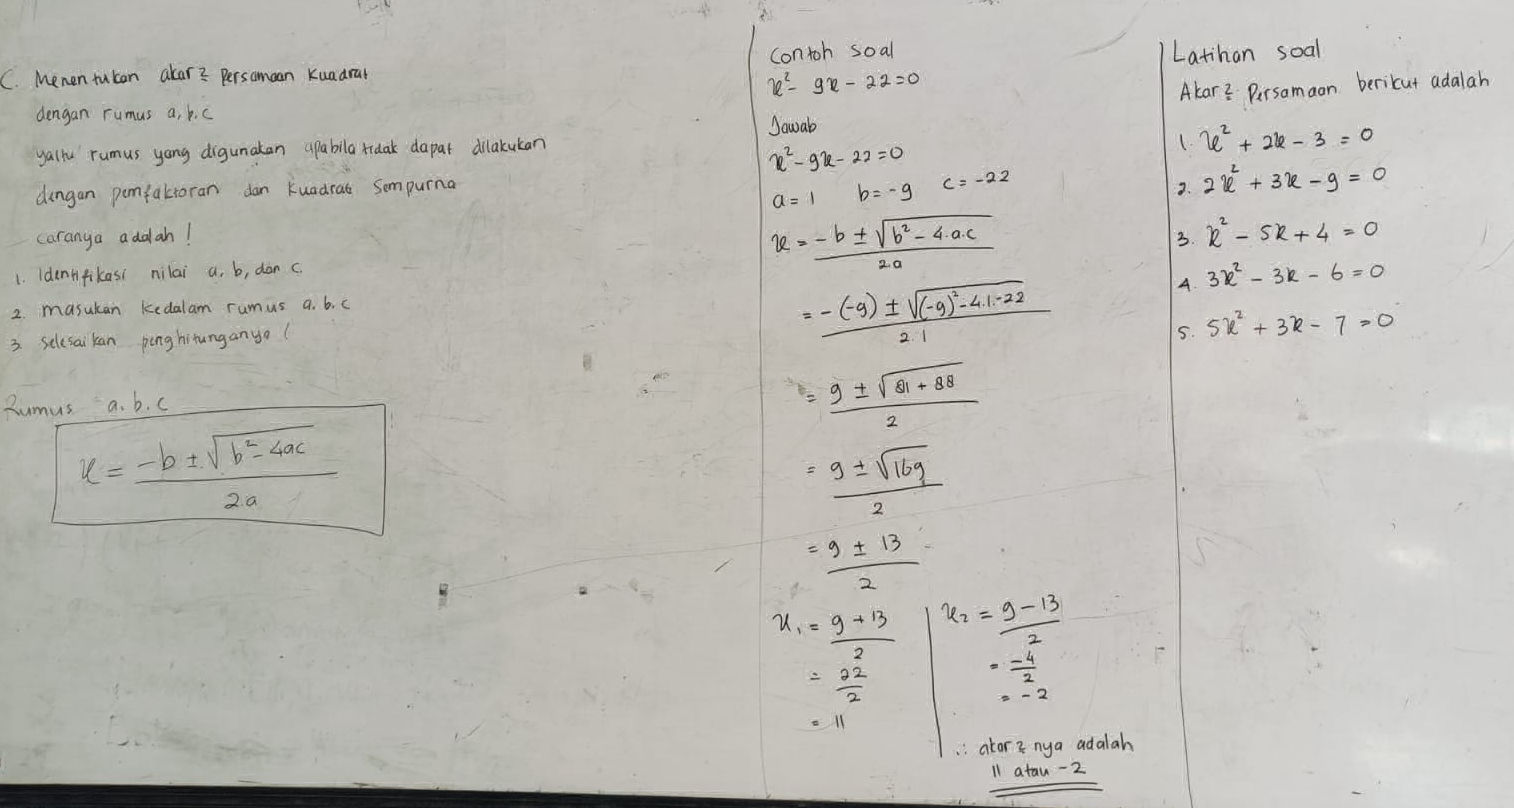 C. Menentukan akar2 Persamaan Kuadrat
dengan rumus a, b, c
yaitu rumus yang digunakan apabila tidak dapat dilakukan
dengan pemfaktoran dan Kuadrat Sempurna
caranya adalah !
1. Identifikasi nilai a, b, dan c.
2. masukan kedalam rumus a. b. c
3. selesaikan penghitunganya !
Rumus a. b. c
x = (-b ± √(b² - 4ac)) / 2.a
Contoh soal
x² - 9x - 22 = 0
Jawab
x² - 9x - 22 = 0
a = 1 b = -9 c = -22
x = (-b ± √(b² - 4.a.c)) / 2.a
= (-(-9) ± √((-9)² - 4.1.-22)) / 2.1
= (9 ± √(81 + 88)) / 2
= (9 ± √169) / 2
= (9 ± 13) / 2
x₁ = (9 + 13) / 2
= 22 / 2
= 11
x₂ = (9 - 13) / 2
= -4 / 2
= -2
∴ akar2 nya adalah
11 atau -2
Latihan soal
Akar2 Persamaan berikut adalah
1. x² + 2x - 3 = 0
2. 2x² + 3x - 9 = 0
3. x² - 5x + 4 = 0
4. 3x² - 3x - 6 = 0
5. 5x² + 3x - 7 = 0